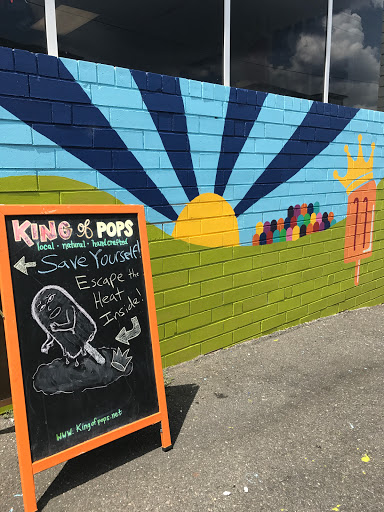 KING of POPS
local · natural · handcrafted
Save Yourself!
Escape the
Heat
Inside!
www.kingofpops.net